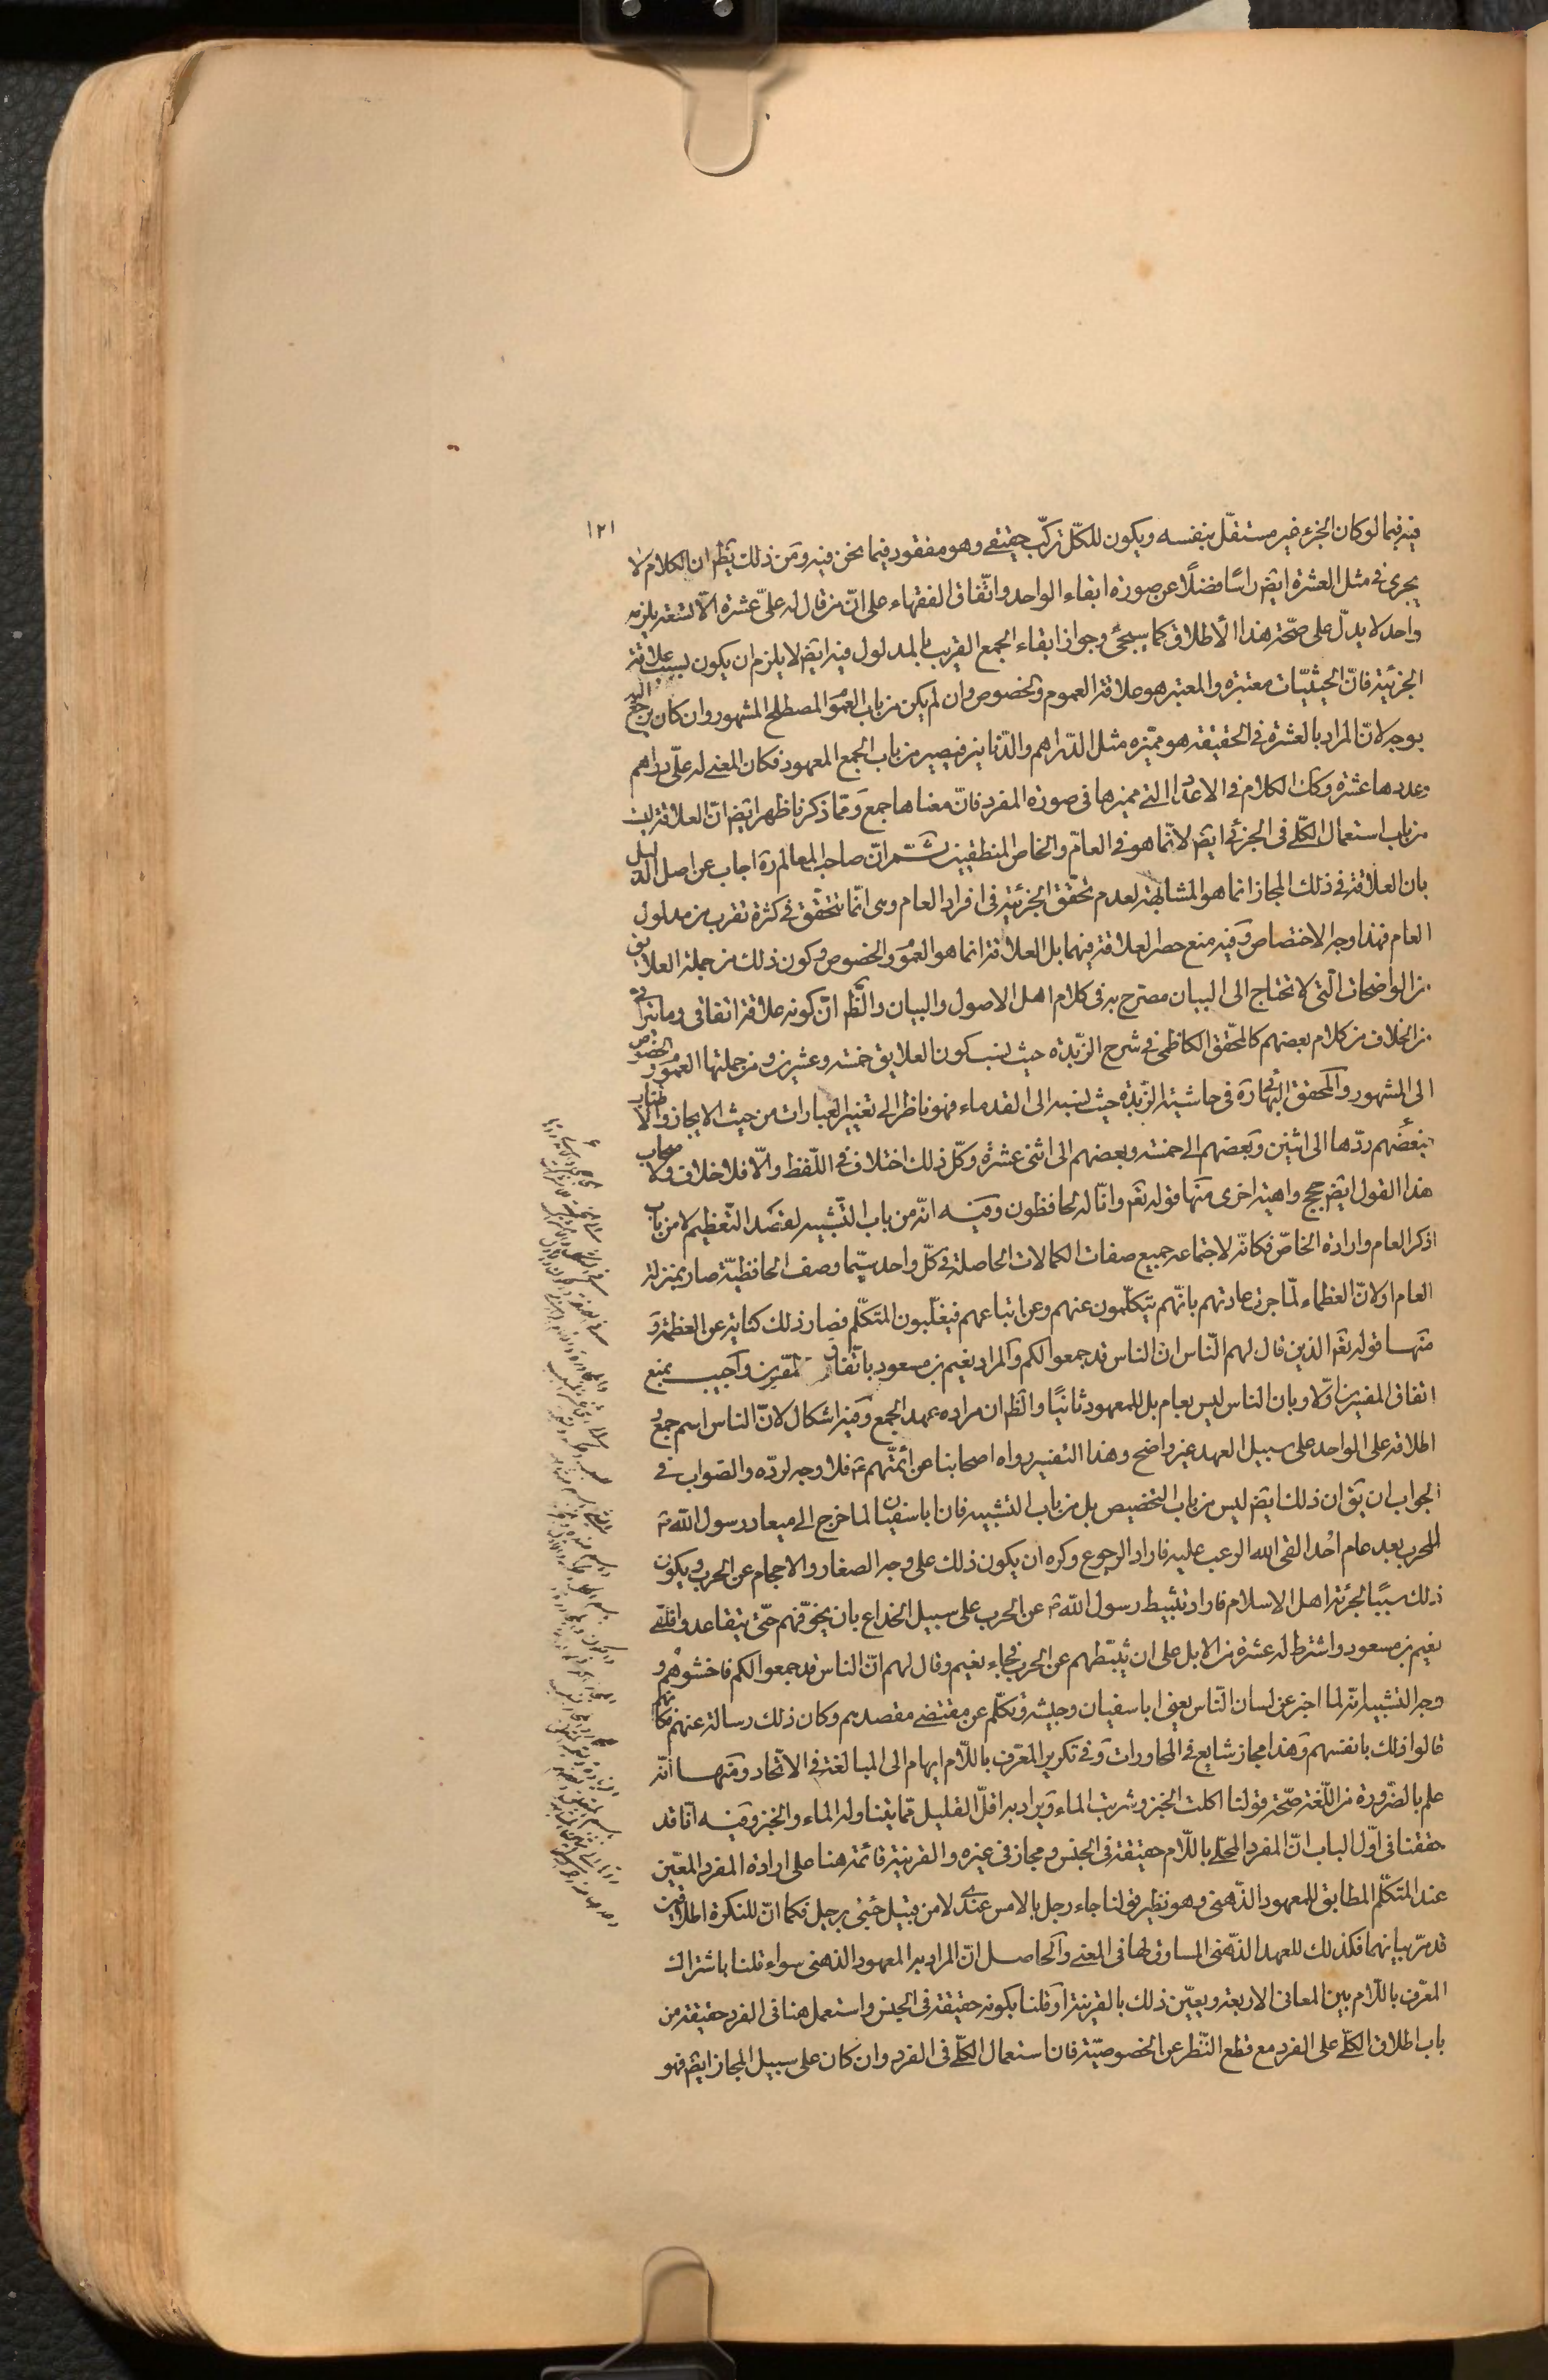 ١٢١
فيه فيما لو كان الجزء غير مستقلّ بنفسه ويكون للكلّ تركّب حقيقي وهو مفقود فيما نحن فيه ومن ذلك يظهر ان الكلام لا
يجرى فى مثل العشرة ايضا راسًا فضلًا عن صورة ابقاء الواحد واتّفاق الفقهاء على انّ من قال له علىّ عشرة الّا تسعة يلزمه
واحد لا يدلّ على صحّة هذا الأطلاق كما سيجئ وجواز ابقاء الجمع القريب بالمدلول فيه ايضا لا يلزم ان يكون بسبب علاقة
الجزئية فانّ الحيثيّات معتبرة والمعتبر هو علاقة العموم والخصوص وان لم يكن من باب العموم المصطلح المشهور وان كان يرجع اليه
بوجه لانّ المراد بالعشرة فى الحقيقة هو مميّزه مثل الدّراهم والدّنانير فيصير من باب الجمع المعهود فكان المعنى له علىّ دراهم
وعددها عشرة وكك الكلام فى الاعداد التى مميزها فى صورة المفرد فانّ معناها جمع وممّا ذكرنا ظهر ايضا انّ العلاقة ليست
من باب استعمال الكلّى فى الجزئى ايضا لانّما هو فى العامّ والخاص المنطقيين ثمّ انّ صاحب المعالم ره اجاب عن اصل الدليل
بان العلاقة فى ذلك المجاز انما هو المشابهة لعدم تحقّق الجزئية فى افراد العام وهى انّما تتحقّق فى كثرة تقرب من مدلول
العام فهذا وجه الاختصاص وفيه منع حصر العلاقة فيهما بل العلاقة انما هو العموم والخصوص وكون ذلك من جملة العلايق
من الواضحات الّتى لا تحتاج الى البيان مصرّح به فى كلام اهل الاصول والبيان والظّ انّ كونه علاقة اتفاقى وما يتراءى
من الخلاف من كلام بعضهم كالمحقّق الكاظمى فى شرح الزّبدة حيث نسب كون العلايق خمسة وعشرين ومن جملتها العموم والخصوص
الى المشهور والمحقق البهائى ره فى حاشية الزّبدة حيث نسبه الى القدماء فهو ناظر الى تغيير العبارات من حيث الايجاز والاطناب
فبعضهم ردّها الى اثنين وبعضهم الى خمسة وبعضهم الى اثنى عشرة وكلّ ذلك اختلاف فى اللّفظ والّا فلا خلاف ولأصحاب
هذا القول ايضا حجج واهية اخرى منها قوله تعا وانّا له لحافظون وفيه انّه من باب التّشبيه لقصد التّعظيم لا من باب
ذكر العام وارادة الخاصّ فكانّه لاجتماعه جميع صفات الكمالات الحاصلة فى كلّ واحد سيّما وصف الحافظيّة صار بمنزلة
العام او لانّ العظماء لمّا جرى عادتهم بانّهم يتكلّمون عنهم وعن اتباعهم فيغلّبون المتكلّم فصار ذلك كناية عن العظمة و
منها قوله تعا الذين قال لهم النّاس ان الناس قد جمعوا لكم والمراد نعيم بن مسعود باتّفاق المفسّرين واجيب بمنع
اتفاق المفسرين اوّلا وبان الناس ليس بعام بل للمعهود ثانيًا والظّ ان مراده عهد الجمع وفيه اشكال لانّ الناس اسم جمع و
اطلاقه على الواحد على سبيل العهد غير واضح وهذا التفسير رواه اصحابنا عن ائمّتهم ع فلا وجه لردّه والصّواب فى
الجواب ان يق ان ذلك ايضا ليس من باب التخصيص بل من باب التشبيه فان ابا سفيان لما خرج الى ميعاد رسول اللّه ص
للحرب بعد عام اُحد القى اللّه الرعب عليه فاراد الرجوع وكره ان يكون ذلك على وجه الصغار والاحجام عن الحرب ويكون
ذلك سببًا لجرئة اهل الاسلام فاراد تثبيط رسول اللّه ص عن الحرب على سبيل الخداع بان يخوّفهم حتّى يتقاعدوا فلقى
نعيم بن مسعود واشترط له عشرة من الابل على ان يثبّطهم عن الحرب فجاء نعيم وقال لهم انّ الناس قد جمعوا لكم فاخشوهم و
وجه التشبيه انّه لما اخبر عن لسان النّاس يعنى ابا سفيان وجيشه وتكلّم عن مقتضى مقصدهم وكان ذلك رسالة عنهم فكانّهم
قالوا ذلك بانفسهم وهذا مجاز شايع فى المحاورات وفى تكرير المعرّف باللّام ايهام الى المبالغة فى الاتّحاد ومنها انّه
علم بالضّرورة من اللّغة صحّة قولنا اكلت الخبز وشربت الماء ويراد به اقلّ القليل ممّا يتناوله الماء والخبز وفيه انّا قد
حققنا فى اوّل الباب انّ المفرد المحلّى باللّام حقيقة فى الجنس ومجاز فى غيره والقرينة قائمة هنا على ارادة المفرد المعيّن
عند المتكلّم المطابق للمعهود الذّهنى وهو نظير قولنا جاء رجل بالامس عندى لا من قبيل جئنى برجل فكما انّ للنكرة اطلاقين
قد مرّ بيانهما فكذلك للعهد الذّهنى المساوق لها فى المعنى والحاصل انّ المراد به المعهود الذهنى سواء قلنا باشتراك
المعرّف باللّام بين المعانى الاربعة ويعيّن ذلك بالقرينة او قلنا بكونه حقيقة فى الجنس واستعمل هنا فى الفرد حقيقة من
باب اطلاق الكلّى على الفرد مع قطع النّظر عن الخصوصيّة فان استعمال الكلّى فى الفرد وان كان على سبيل المجاز ايضا فهو